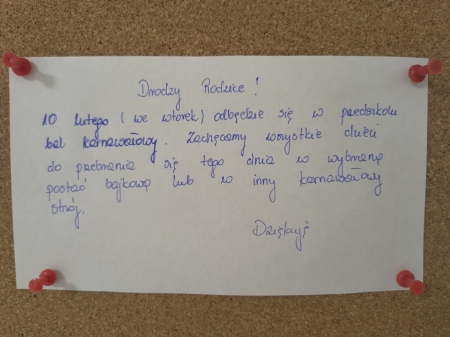 Drodzy Rodzice!
10 lutego (we wtorek) odbędzie się w przedszkolu
bal karnawałowy. Zachęcamy wszystkie dzieci
do przebrania się tego dnia w wybraną
postać bajkową lub w inny karnawałowy
strój.
Dziękuję